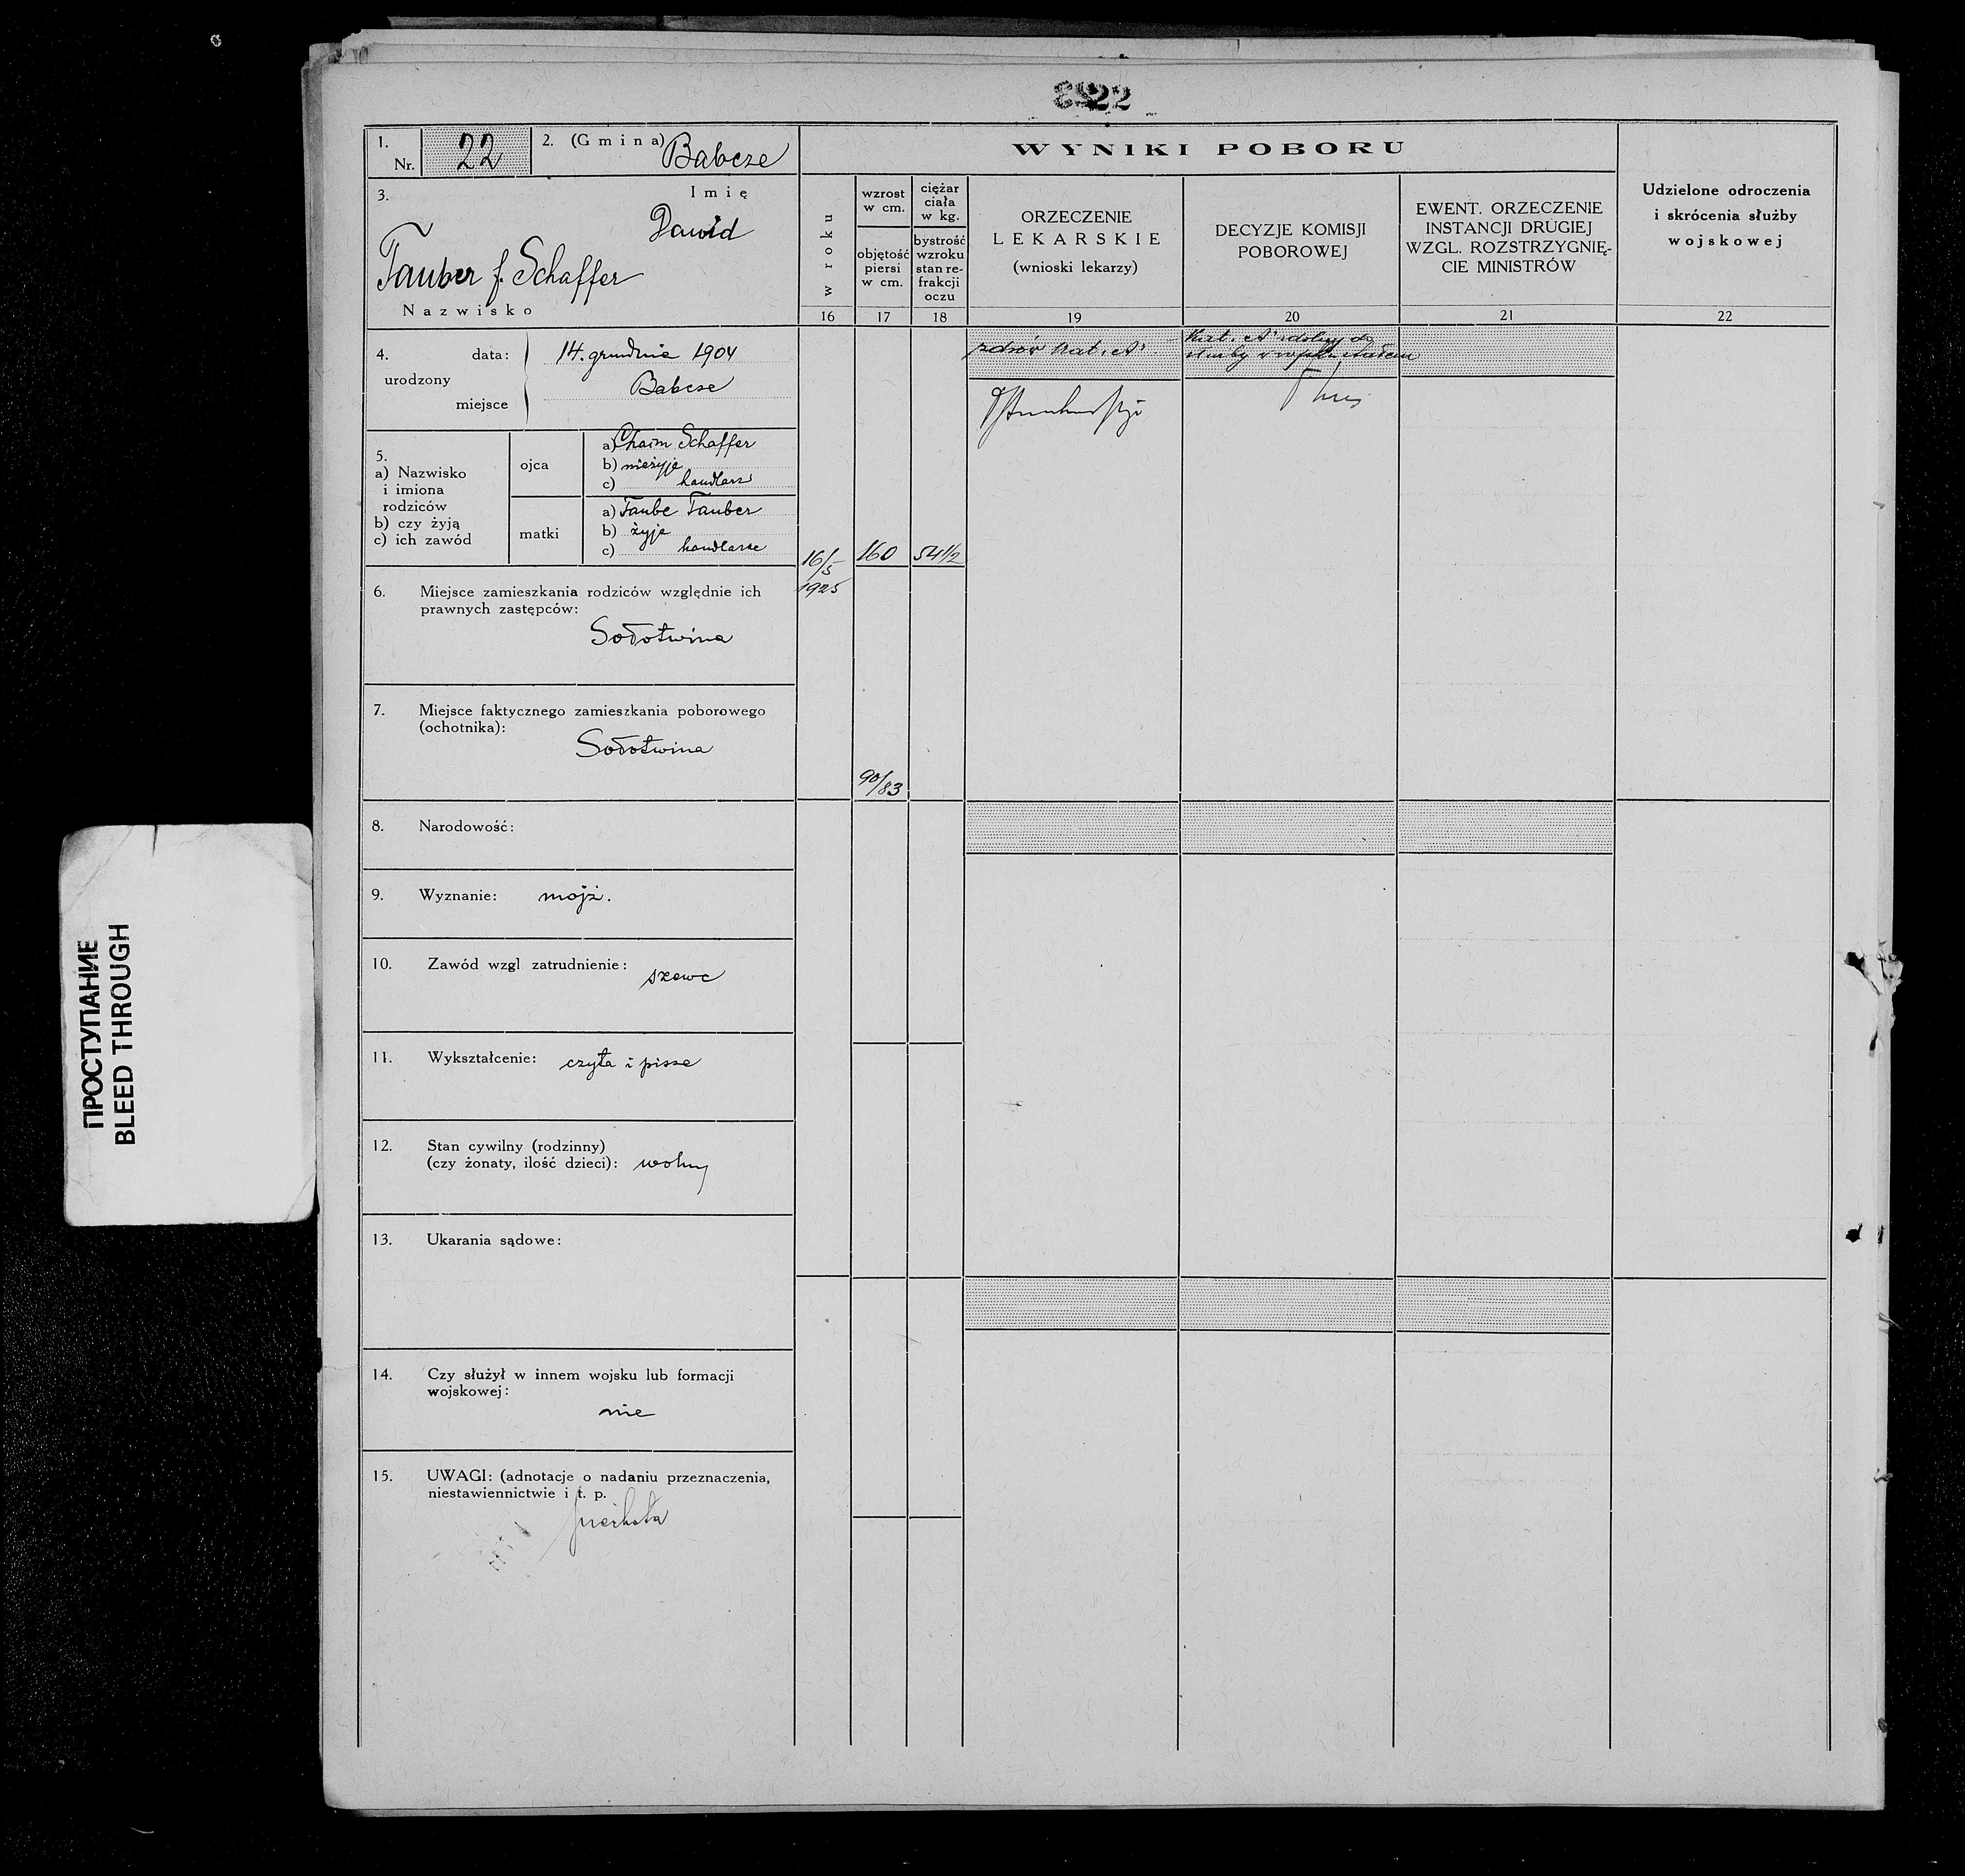 22
1.
Nr. 22
2. (Gmina) Babcze
3. Imię
Dawid
Tauber f. Schaffer
Nazwisko
4. urodzony
data: 14. grudnia 1904
miejsce Babcze
5.
a) Nazwisko
i imiona
rodziców
b) czy żyją
c) ich zawód
ojca
a) Chaim Schaffer
b) nieżyje
c) handlarz
matki
a) Taube Tauber
b) żyje
c) handlarze
6. Miejsce zamieszkania rodziców względnie ich
prawnych zastępców:
Sołotwina
7. Miejsce faktycznego zamieszkania poborowego
(ochotnika):
Sołotwina
8. Narodowość:
9. Wyznanie: mojż.
10. Zawód wzgl zatrudnienie: szewc
11. Wykształcenie: czyta i pisze
12. Stan cywilny (rodzinny)
(czy żonaty, ilość dzieci): wolny
13. Ukarania sądowe:
14. Czy służył w innem wojsku lub formacji
wojskowej:
nie
15. UWAGI: (adnotacje o nadaniu przeznaczenia,
niestawiennictwie i t. p.
WYNIKI POBORU
w roku
16
wzrost
w cm.
objętość
piersi
w cm.
17
ciężar
ciała
w kg.
bystrość
wzroku
stan re-
frakcji
oczu
18
ORZECZENIE
LEKARSKIE
(wnioski lekarzy)
19
DECYZJE KOMISJI
POBOROWEJ
20
EWENT. ORZECZENIE
INSTANCJI DRUGIEJ
WZGL. ROZSTRZYGNIĘ-
CIE MINISTRÓW
21
Udzielone odroczenia
i skrócenia służby
wojskowej
22
16/5
1925
160
54 1/2
90/83
zdrów kat. A
kat. A zdolny do
służby
ПРОСТУПАНИЕ
BLEED THROUGH